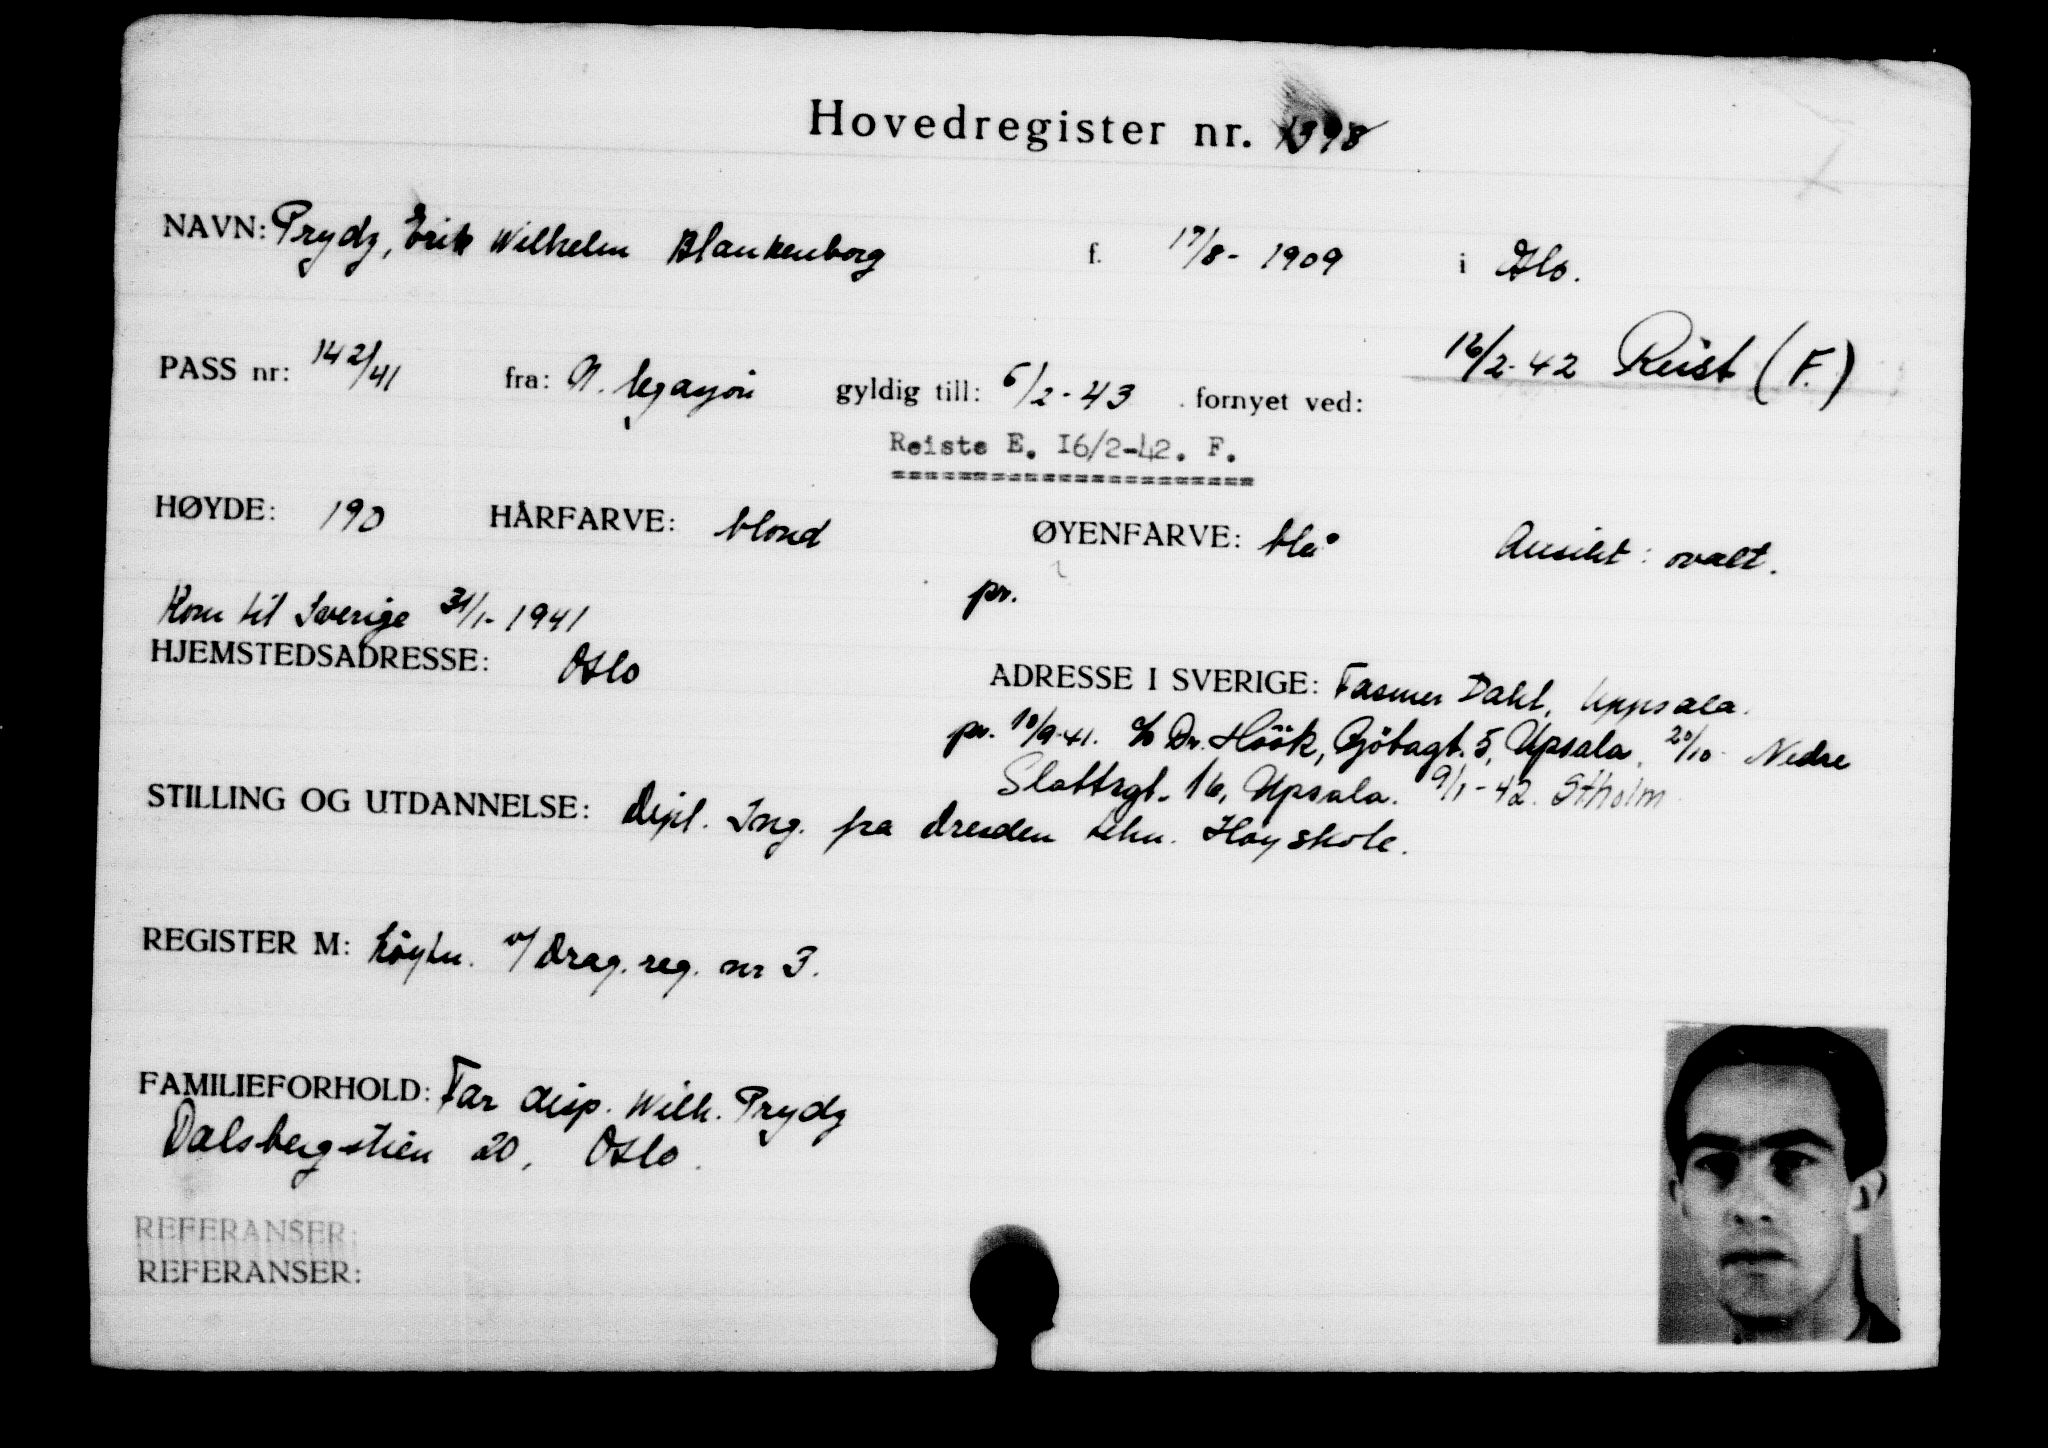 Hovedregister nr. 1398
NAVN: Prydz, Erik Wilhelm Blankenborg f. 17/8- 1909 i Oslo.
16/2-42 Reist (F.)
PASS nr: 142/41 fra: N. legasjon gyldig till: 6/2-43 fornyet ved:
Reiste E. I6/2-42. F.
HØYDE: 190 HÅRFARVE: blond ØYENFARVE: blå Ansikt: ovalt.
Kom til Sverige 31/1-1941 pr.
HJEMSTEDSADRESSE: Oslo ADRESSE I SVERIGE: Dahl, Uppsala.
pr. 10/9-41. c/o Dr. Höök, 5, Upsala, 20/10- Nedre
Slottsgt. 16, Upsala. 9/1-42. Stholm
STILLING OG UTDANNELSE: Dipl. Ing. fra Dresden tekn. Høyskole.
REGISTER M: Løytn. v/ Drag. reg. nr 3.
FAMILIEFORHOLD: Far disp. Wilh. Prydz
Dalsbergstien 20, Oslo.
REFERANSER:
REFERANSER: